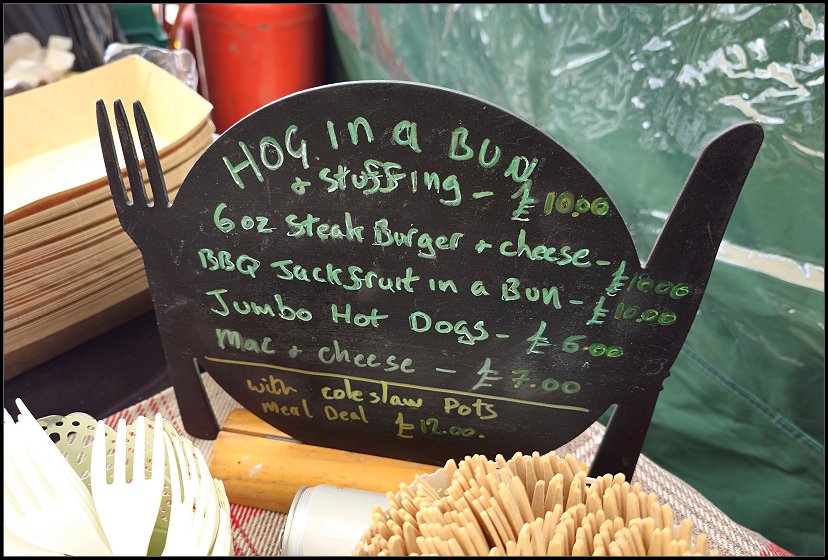 HOG in a BUN
+ stuffing - £10.00
6oz Steak Burger + cheese - £10.00
BBQ Jackfruit in a Bun - £10.00
Jumbo Hot Dogs - £6.00
Mac + cheese - £7.00
with coleslaw Pots
Meal Deal £12.00.